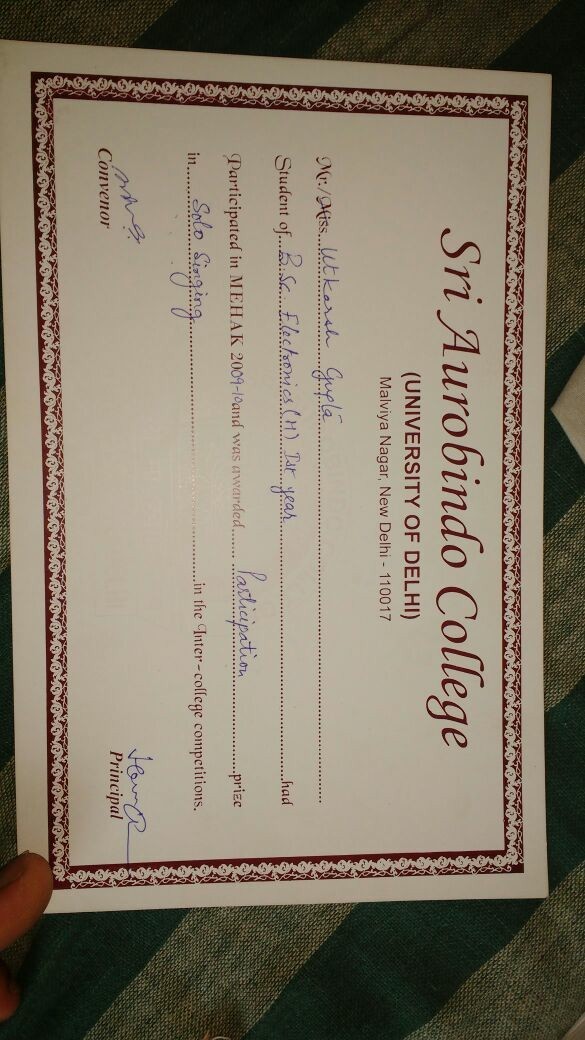 Sri Aurobindo College
(UNIVERSITY OF DELHI)
Malviya Nagar, New Delhi - 110017
Mr./Miss....Utkarsh Gupta....
Student of....B.Sc. Electronics (H) Ist year....had
Participated in MEHAK 2009-10 and was awarded....Participation....prize
in....Solo Singing....in the Inter-college competitions.
Convenor Principal